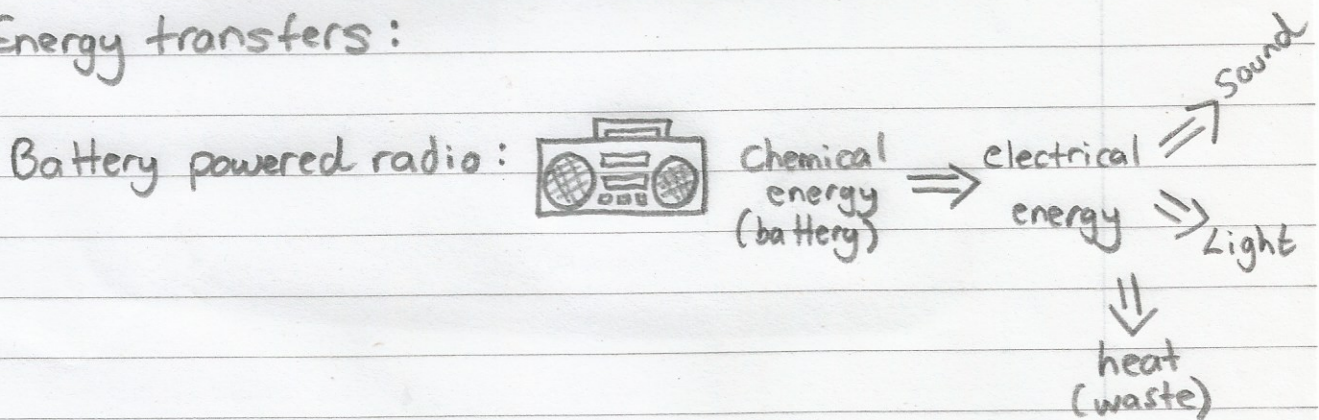 Energy transfers:
Battery powered radio:
Chemical
energy
(battery)
electrical
energy
Sound
Light
heat
(waste)